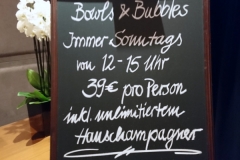 Bowls & Bubbles
Immer Sonntags
von 12-15 Uhr
39€ pro Person
inkl. unlimitiertem
Hauschampagner